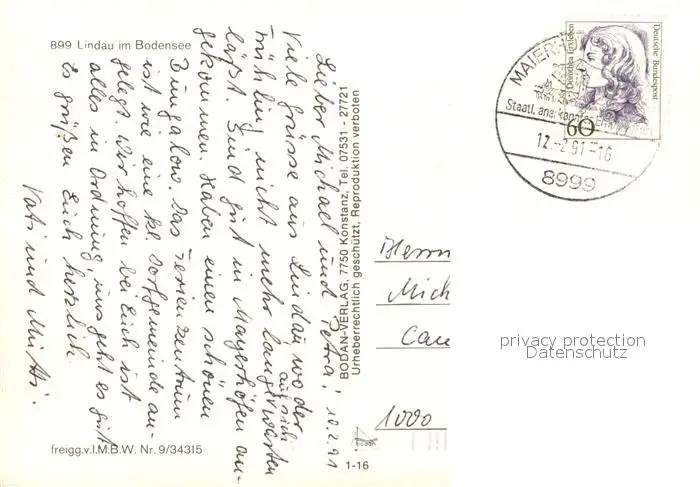 899 Lindau im Bodensee
Lieber Michael und Petra! 10.2.91
Viele Grüsse aus Lindau, wo der
Frühling nicht mehr lange warten auf sich
läßt. Sind gut in Mayerhöfen an-
gekommen. Haben einen schönen
Bungalow. Das Ferienzentrum
ist wie eine kl. Dorfgemeinde an-
gelegt. Wir hoffen bei Euch ist
alles in Ordnung, uns geht es gut
Es grüßen Euch herzlich
Vati und Mutti.
freigg.v.I.M.B.W. Nr. 9/34315
BODAN-VERLAG, 7750 Konstanz, Tel. 07531 - 27721
Urheberrechtlich geschützt, Reproduktion verboten
1-16
MAIERHÖ
Staatl. anerkannter
12.-2.91-16
8999
Dorothea Erxleben
Deutsche Bundespost
60
Herrn
Mich
1000
privacy protection
Datenschutz